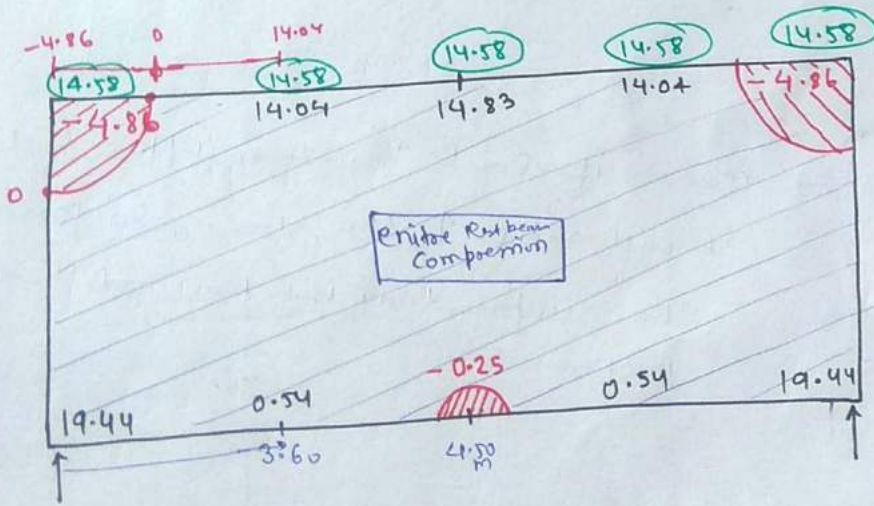 -4.86 0 14.04
14.58 14.58 14.58 14.58 14.58
-4.86 14.04 14.83 14.04 -4.86
0
Enitre Rest beam
Compression
-0.25
19.44 0.54 0.54 19.44
3.60 4.50
m